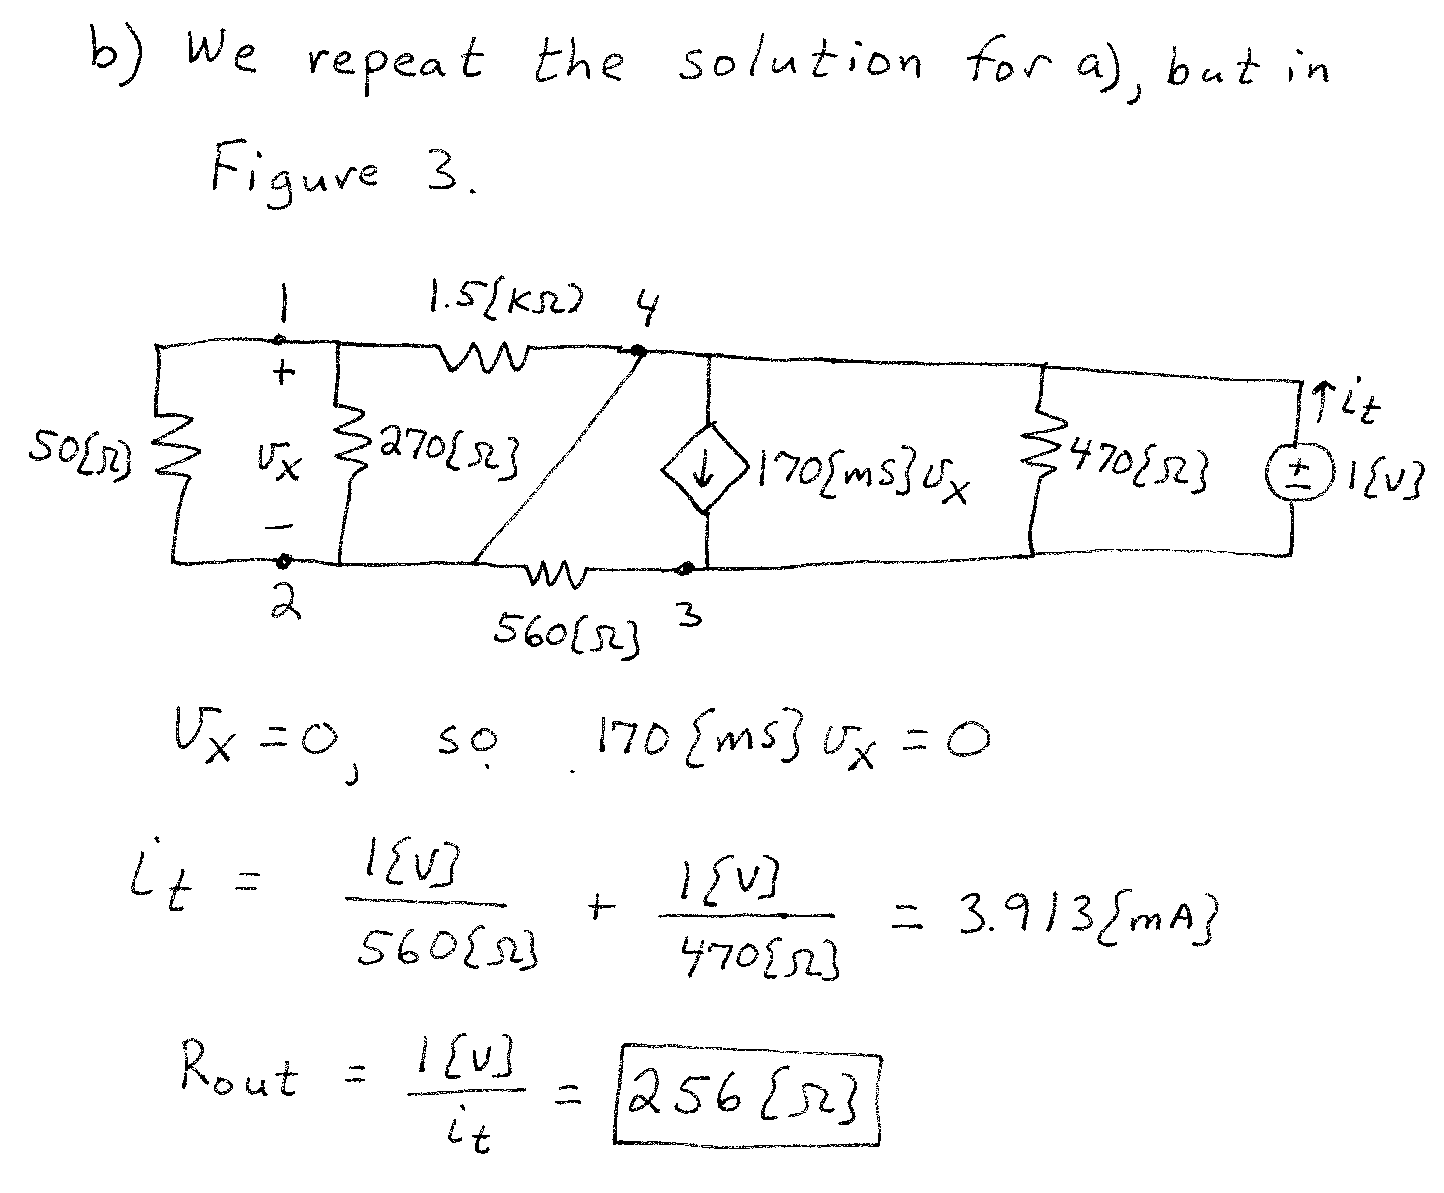 b) We repeat the solution for a), but in
Figure 3.
1 1.5{kΩ} 4
+
50{Ω} vx 270{Ω} 170{mS}vx 470{Ω} + 1{V} it
-
2 560{Ω} 3
vx = 0, so 170{mS}vx = 0
it = 1{V}/560{Ω} + 1{V}/470{Ω} = 3.913{mA}
Rout = 1{V}/it = 256{Ω}